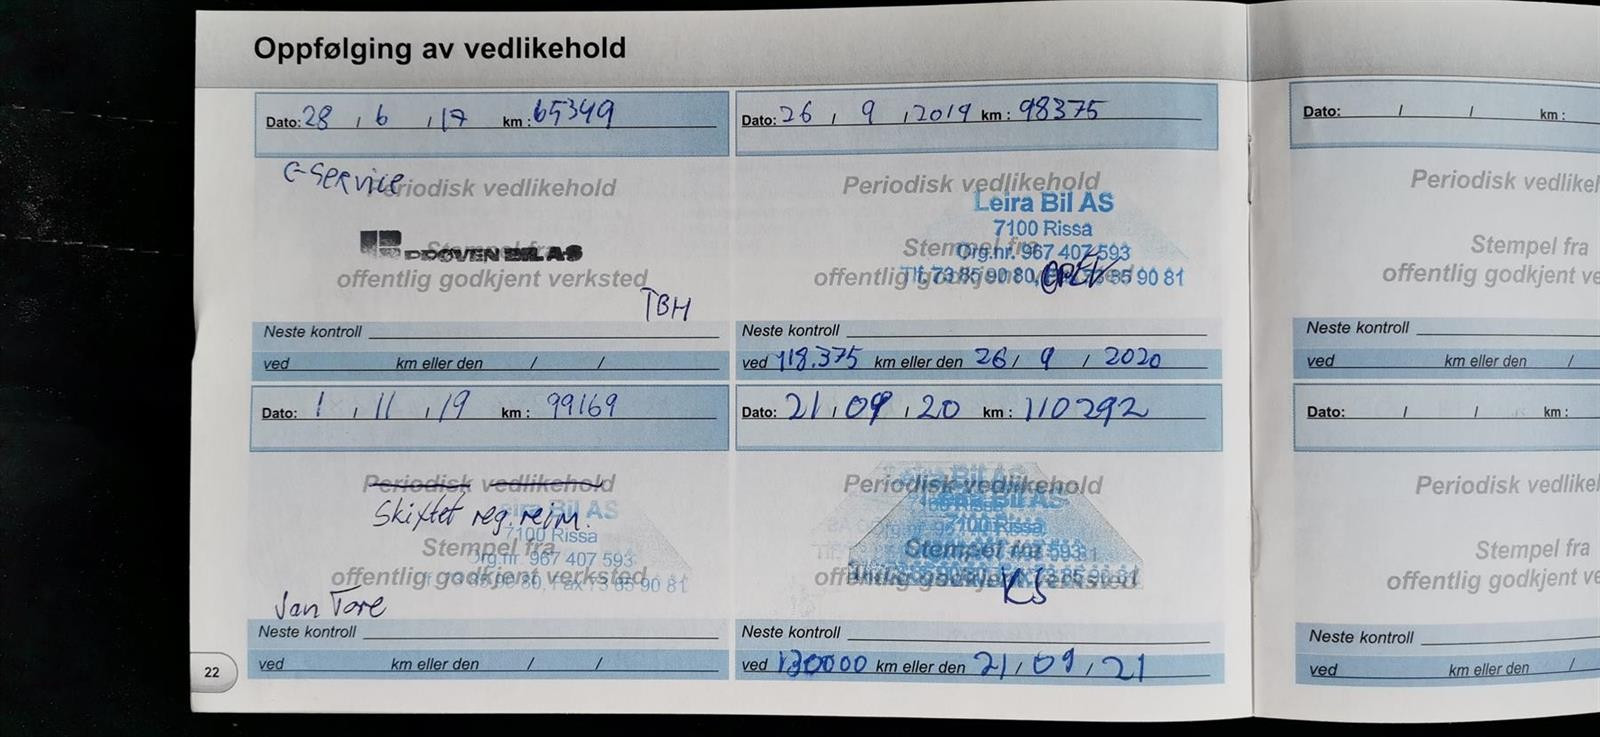 Oppfølging av vedlikehold
Dato: 28 / 6 / 17 km: 65349
C-Service
Periodisk vedlikehold
Stempel fra
PRØVEN BIL AS
offentlig godkjent verksted
TBH
Neste kontroll
ved km eller den / /
Dato: 26 / 9 / 2019 km: 98375
Periodisk vedlikehold
Leira Bil AS
7100 Rissa
Stempel fra
Org.nr. 967 407 593
offentlig godkjent verksted
Tlf. 73 85 90 80, Fax 73 85 90 81
Neste kontroll
ved 118.375 km eller den 26 / 9 / 2020
Dato: 1 / 11 / 19 km: 99169
Periodisk vedlikehold
Skiftet reg.reim.
Leira Bil AS
7100 Rissa
Stempel fra
Org.nr. 967 407 593
offentlig godkjent verksted
Tlf. 73 85 90 80, Fax 73 85 90 81
Jan Tore
Neste kontroll
ved km eller den / /
Dato: 21 / 09 / 20 km: 110292
Periodisk vedlikehold
Leira Bil AS
7100 Rissa
Stempel fra
offentlig godkjent verksted
KS
Neste kontroll
ved 130000 km eller den 21 / 09 / 21
22
Dato: / / km:
Periodisk vedlikel
Stempel fra
offentlig godkjent ve
Neste kontroll
ved km eller den /
Dato: / / km:
Periodisk vedlikel
Stempel fra
offentlig godkjent ve
Neste kontroll
ved km eller den /